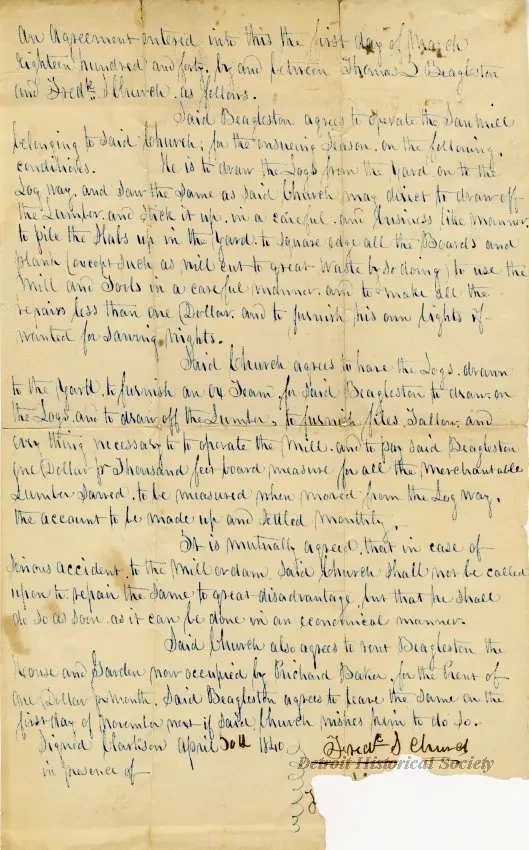 An Agreement entered into this the first day of March
Eighteen hundred and forty. by and between Thomas L Beagleston
and Fredk S Church. as follows.
Said Beagleston agrees to operate the Saw mill
belonging to said Church, for the ensueing Season. on the following.
conditions. He is to draw the Logs from the Yard on to the
Log way. and Saw the Same as said Church may direct to draw off
the Lumber. and Stick it up. in a careful. and business like manner.
to pile the Slabs up in the Yard. to square edge all the Boards and
plank (except such as will cut to great waste by so doing) to use the
Mill and Tools in a careful manner. and to make all the
repairs less than one Dollar. and to furnish his own lights if
wanted for Sawing Nights.
Said Church agrees to have the Logs. drawn
to the Yard. to furnish an Ox Team. for Said Beagleston to draw. on
the Logs. and to draw off the Lumber, to furnish files, Tallow. and
every thing necessary to to operate the Mill. and to pay said Beagleston
One Dollar pr Thousand feet board measure for all the Merchantable
Lumber Sawed. to be measured when moved from the Log way.
the account to be made up and Settled Monthly.
It is mutually agreed. that in case of
Serious accident. to the Mill or dam. Said Church shall not be called
upon to. repair the Same to great disadvantage, but that he shall
do so as soon. as it can be done in an economical manner.
Said Church also agrees to rent Beagleston the
House and Garden now occupied by Richard Baker, for the Rent of
One Dollar pr Month, Said Beagleston agrees to leave the Same on the
first day of November next if Said Church wishes him to do So.
Signed Clarkson April 30th 1840
Fredk S Church
in presence of
Detroit Historical Society